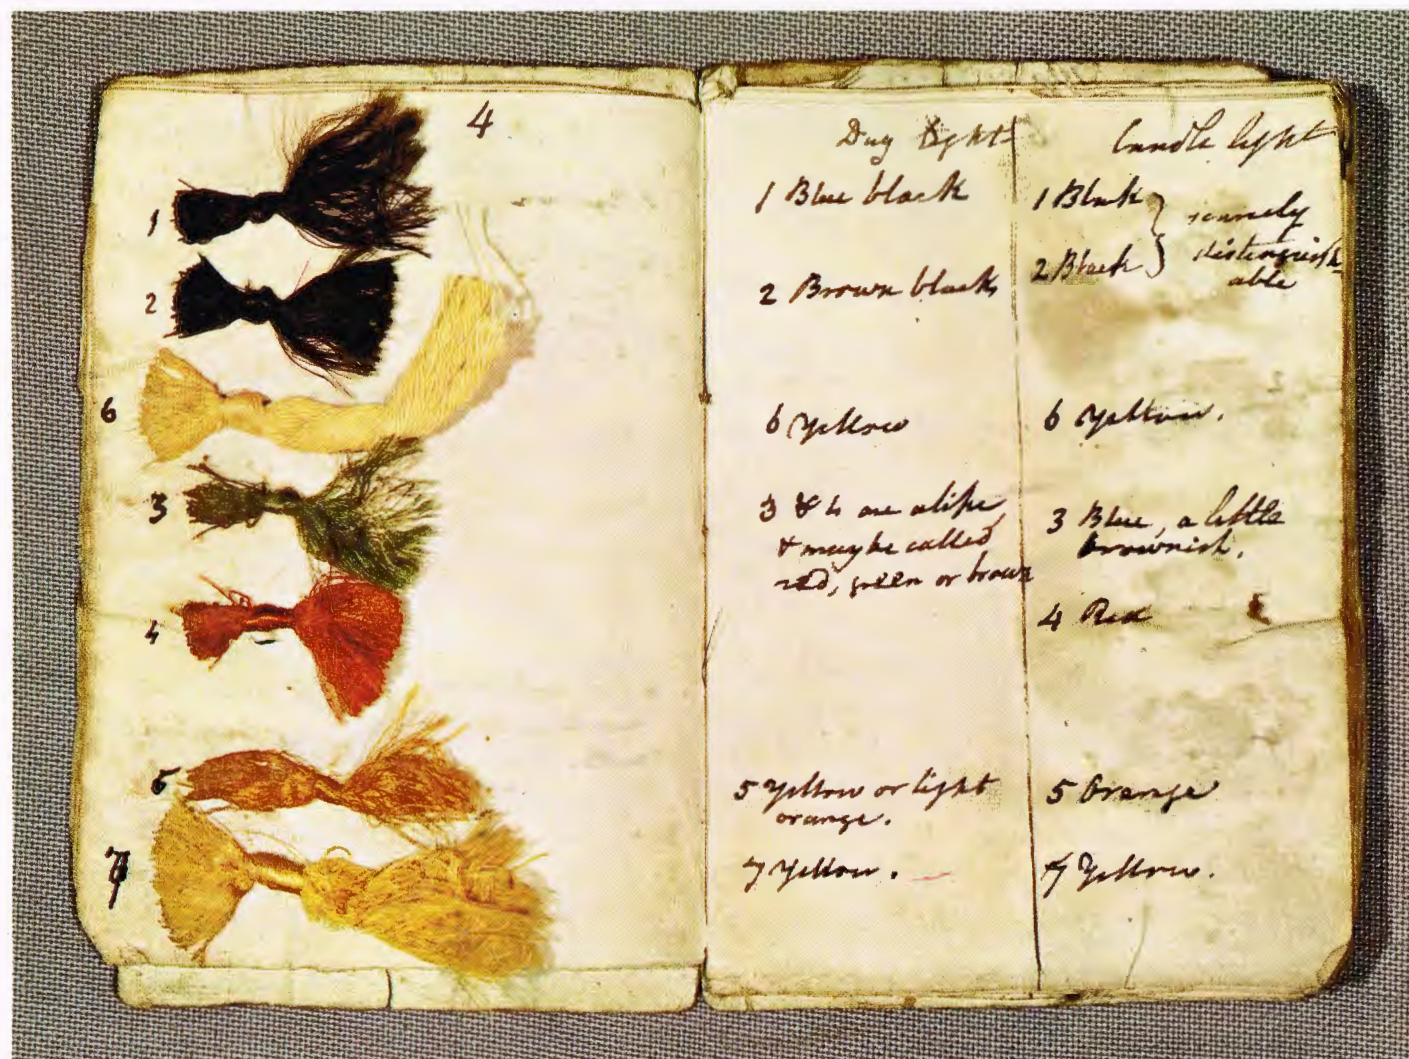 4
1
2
6
3
4
5
7
Day light
1 Blue black
2 Brown black
6 Yellow
3 & 4 are alike
& may be called
red, green or brown
5 Yellow or light
orange.
7 Yellow.
Candle light
1 Black
2 Black
scarcely
distinguish-
able
6 Yellow.
3 Blue, a little
brownish.
4 Red
5 Orange
7 Yellow.